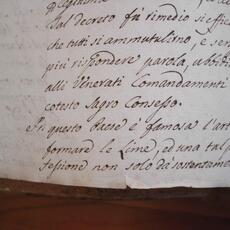 dal decreto fù rimedio sì effic
che tutti si ammutulino, e sen
più rispondere parola, ubbidi
alli Venerati Comandamenti
cotesto Sagro Consesso.
In questo Paese è famosa l'art
formare le Lime, ed una tal p
fessione non solo dà sostentame